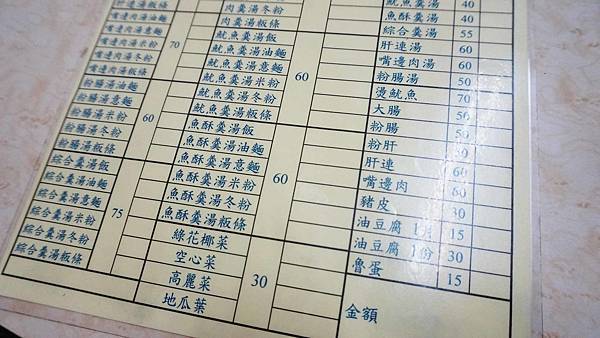 肝連湯板條
嘴邊肉湯油麵
嘴邊肉湯意麵
嘴邊肉湯米粉
嘴邊肉湯冬粉
嘴邊肉湯板條
70
粉腸湯油麵
粉腸湯意麵
粉腸湯米粉
粉腸湯冬粉
粉腸湯板條
60
綜合羹湯飯
綜合羹湯油麵
綜合羹湯意麵
綜合羹湯米粉
綜合羹湯冬粉
綜合羹湯板條
75
肉羹湯冬粉
肉羹湯板條
魷魚羹湯飯
魷魚羹湯油麵
魷魚羹湯意麵
魷魚羹湯米粉
魷魚羹湯冬粉
魷魚羹湯板條
60
魚酥羹湯飯
魚酥羹湯油麵
魚酥羹湯意麵
魚酥羹湯米粉
魚酥羹湯冬粉
魚酥羹湯板條
60
綠花椰菜
空心菜
高麗菜
地瓜葉
30
魷魚羹湯 40
魚酥羹湯 40
綜合羹湯 55
肝連湯 50
嘴邊肉湯 60
粉腸湯 50
燙魷魚 70
大腸 50
粉腸 60
粉肝 60
肝連 60
嘴邊肉 60
豬皮 30
油豆腐 1片 15
油豆腐 1份 30
魯蛋 15
金額